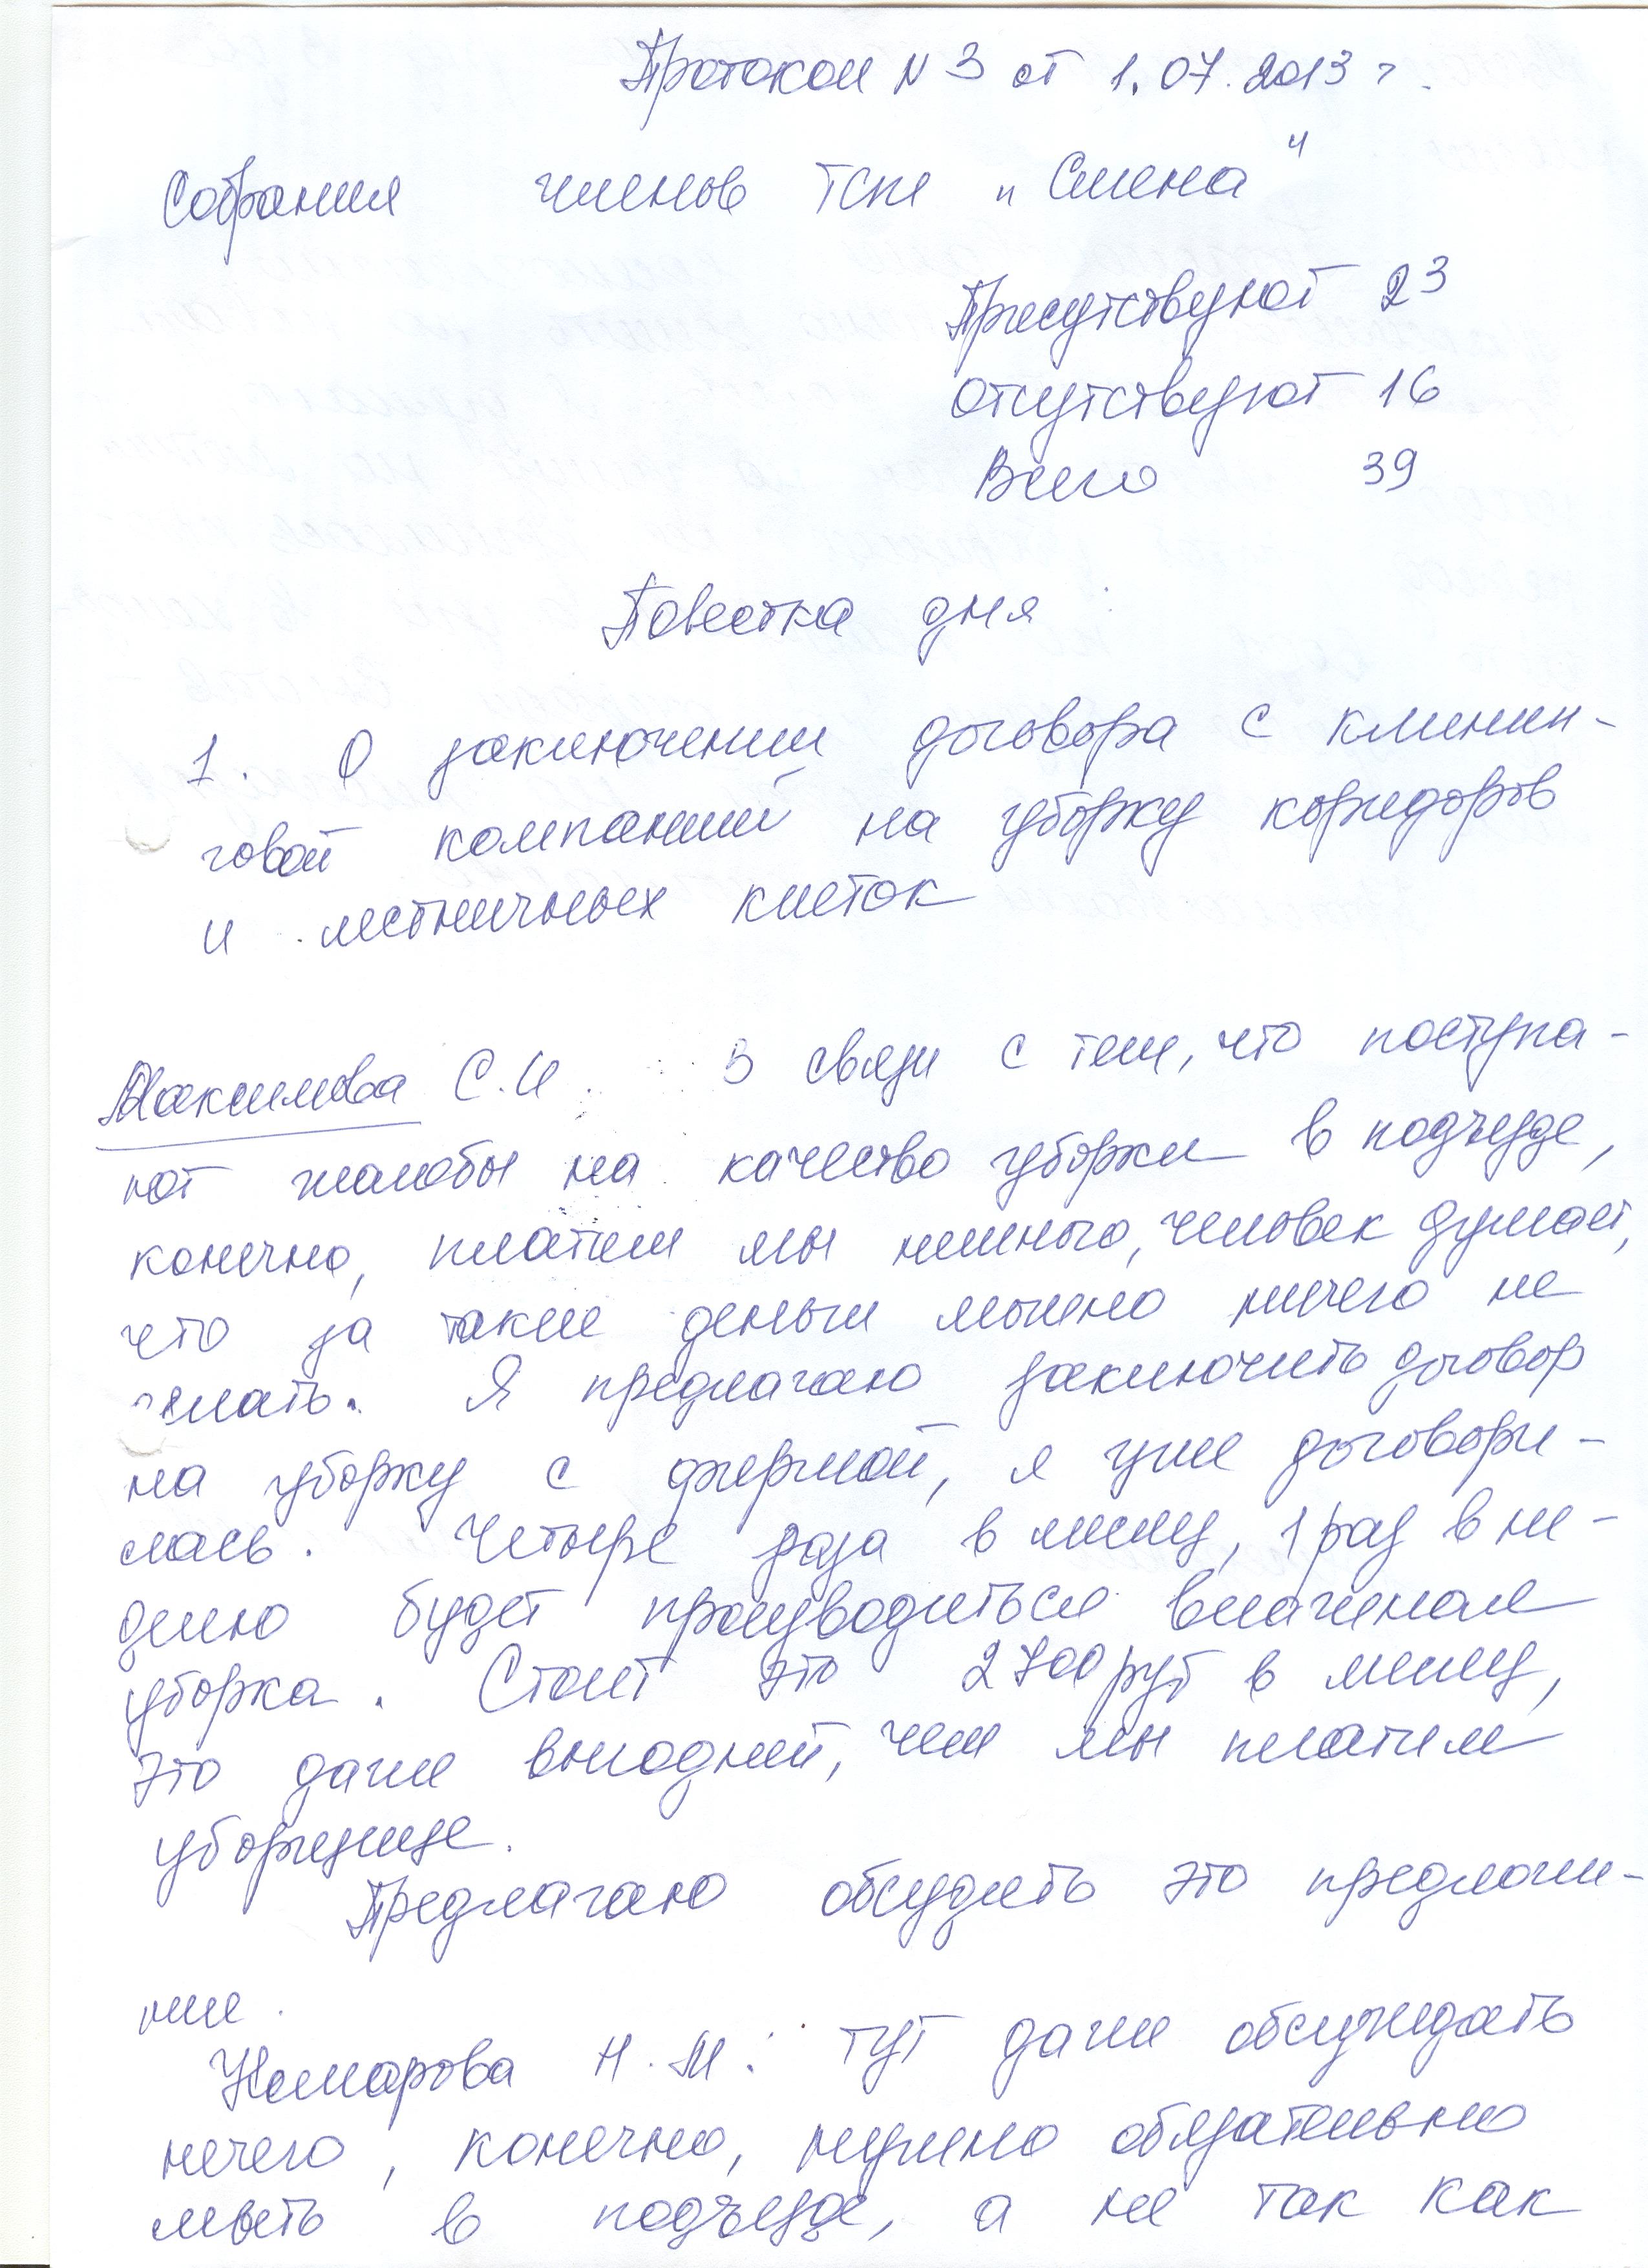 Протокол N 3 от 1.07.2013 г.
Собрания членов ТСЖ „Смена"
Присутствуют 23
Отсутствуют 16
Всего 39
Повестка дня:
1. О заключении договора с клинин-
говой компанией на уборку коридоров
и лестничных клеток
Максимова С.И. В связи с тем, что поступа-
ют жалобы на качество уборки в подъезде,
конечно, платим мы немного, человек думает,
что за такие деньги можно ничего не
делать. Я предлагаю заключить договор
на уборку с фирмой, я уже договори-
лась. Четыре раза в месяц, 1 раз в не-
делю будет производиться влажная
уборка. Стоит это 2700 руб в месяц,
это даже выгодней, чем мы платим
уборщице.
Предлагаю обсудить это предложе-
ние.
Н.М.: Тут даже обсуждать
нечего, конечно, нужно обязательно
мыть в подъезде, а не так как